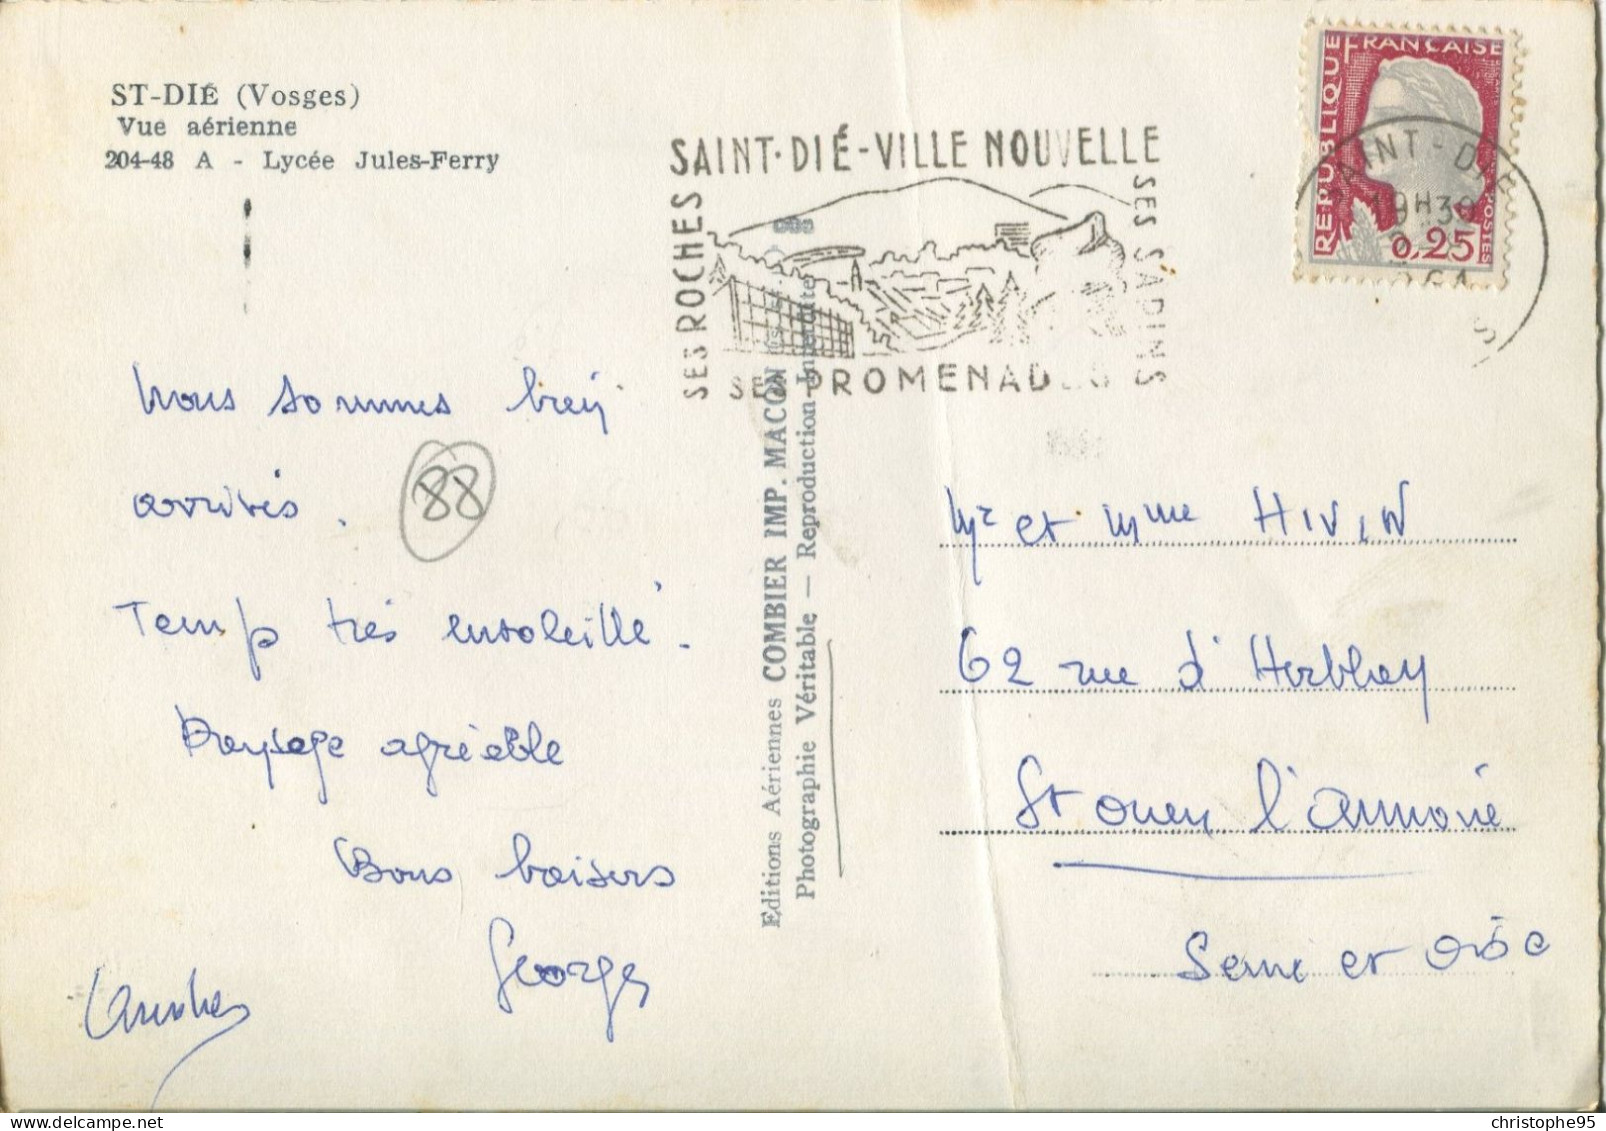 ST-DIÉ (Vosges)
Vue aérienne
204-48 A - Lycée Jules-Ferry
SAINT-DIÉ-VILLE NOUVELLE
SES ROCHES
SES SAPINS
SES PROMENADES
REPUBLIQUE
FRANÇAISE
POSTES
0,25
SAINT-DIÉ
19H30
Editions Aériennes COMBIER IMP. MACON
Photographie Véritable — Reproduction Interdite
Nous sommes bien
arrivés.
88
Temp très ensoleillé.
Paysage agréable
Bons baisers
Georges
Mr et Mme HIVIN
62 rue d'Herblay
St Ouen l'aumoné
Seine et Oise
christophe95